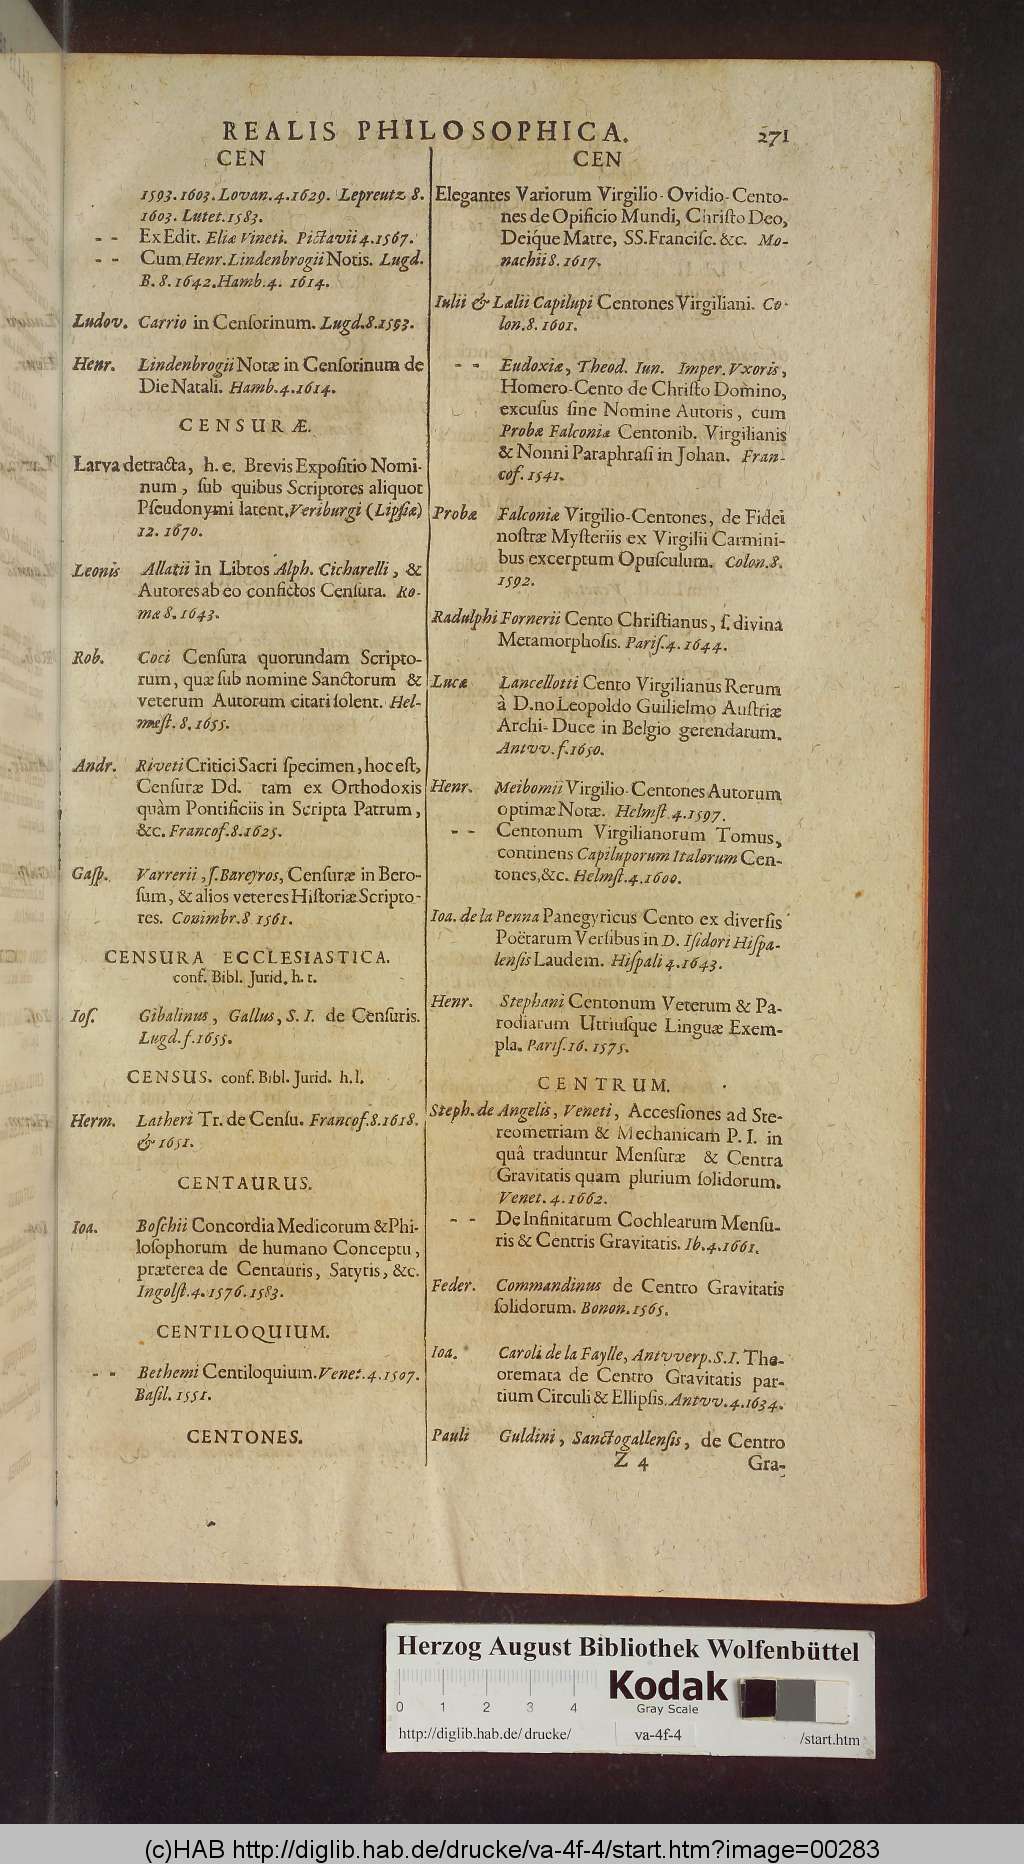 REALIS PHILOSOPHICA. 271
CEN
1593. 1603. Lovan. 4. 1629. Lepreutz 8.
1603. Lutet. 1583.
- - Ex Edit. Eliæ Vineti. Pictavii 4. 1567.
- - Cum Henr. Lindenbrogii Notis. Lugd.
B. 8. 1642. Hamb. 4. 1614.
Ludov. Carrio in Censorinum. Lugd. 8. 1593.
Henr. Lindenbrogii Notæ in Censorinum de
Die Natali. Hamb. 4. 1614.
CENSURÆ.
Larva detracta, h. e. Brevis Expositio Nomi-
num, sub quibus Scriptores aliquot
Pseudonymi latent. Veriburgi (Lipsiæ)
12. 1670.
Leonis Allatii in Libros Alph. Cicharelli, &
Autores ab eo confictos Censura. Ro-
mæ 8. 1643.
Rob. Coci Censura quorundam Scripto-
rum, quæ sub nomine Sanctorum &
veterum Autorum citari solent. Hel-
mæst. 8. 1655.
Andr. Riveti Critici Sacri specimen, hoc est,
Censuræ Dd. tam ex Orthodoxis
quàm Pontificiis in Scripta Patrum,
&c. Francof. 8. 1625.
Gasp. Varrerii, s. Bareyros, Censuræ in Bero-
sum, & alios veteres Historiæ Scripto-
res. Conimbr. 8 1561.
CENSURA ECCLESIASTICA.
conf. Bibl. Jurid. h. t.
Ios. Gibalinus, Gallus, S. I. de Censuris.
Lugd. f. 1655.
CENSUS. conf. Bibl. Jurid. h. l.
Herm. Latheri Tr. de Censu. Francof. 8. 1618.
& 1651.
CENTAURUS.
Ioa. Boschii Concordia Medicorum & Phi-
losophorum de humano Conceptu,
præterea de Centauris, Satyris, &c.
Ingolst. 4. 1576. 1583.
CENTILOQUIUM.
- - Bethemi Centiloquium. Venet. 4. 1507.
Basil. 1551.
CENTONES.
CEN
Elegantes Variorum Virgilio-Ovidio-Cento-
nes de Opificio Mundi, Christo Deo,
Deique Matre, SS. Francisc. &c. Mo-
nachii 8. 1617.
Iulii & Lælii Capilupi Centones Virgiliani. Co-
lon. 8. 1601.
- - Eudoxiæ, Theod. Iun. Imper. Uxoris,
Homero-Cento de Christo Domino,
excusus sine Nomine Autoris, cum
Probæ Falconiæ Centonib. Virgilianis
& Nonni Paraphrasi in Johan. Fran-
cof. 1541.
Probæ Falconiæ Virgilio-Centones, de Fidei
nostræ Mysteriis ex Virgilii Carmini-
bus excerptum Opusculum. Colon. 8.
1592.
Radulphi Fornerii Cento Christianus, s. divina
Metamorphosis. Paris. 4. 1644.
Lucæ Lancellotti Cento Virgilianus Rerum
à D.no Leopoldo Guilielmo Austriæ
Archi-Duce in Belgio gerendarum.
Antvv. f. 1650.
Henr. Meibomii Virgilio-Centones Autorum
optimæ Notæ. Helmst. 4. 1597.
- - Centonum Virgilianorum Tomus,
continens Capiluporum Italorum Cen-
tones, &c. Helmst. 4. 1600.
Ioa. de la Penna Panegyricus Cento ex diversis
Poëtarum Versibus in D. Isidori Hispa-
lensis Laudem. Hispali 4. 1643.
Henr. Stephani Centonum Veterum & Pa-
rodiarum Utriusque Linguæ Exem-
pla. Paris. 16. 1575.
CENTRUM.
Steph. de Angelis, Veneti, Accessiones ad Ste-
reometriam & Mechanicam P. I. in
quâ traduntur Mensuræ & Centra
Gravitatis quam plurium solidorum.
Venet. 4. 1662.
- - De Infinitarum Cochlearum Mensu-
ris & Centris Gravitatis. Ib. 4. 1661.
Feder. Commandinus de Centro Gravitatis
solidorum. Bonon. 1565.
Ioa. Caroli de la Faylle, Antvverp. S. I. Theo-
oremata de Centro Gravitatis par-
tium Circuli & Ellipsis. Antvv. 4. 1634.
Pauli Guldini, Sanctogallensis, de Centro
Z 4 Gra-
Herzog August Bibliothek Wolfenbüttel
0 1 2 3 4
Kodak
Gray Scale
http://diglib.hab.de/drucke/ va-4f-4 /start.htm
(c)HAB http://diglib.hab.de/drucke/va-4f-4/start.htm?image=00283